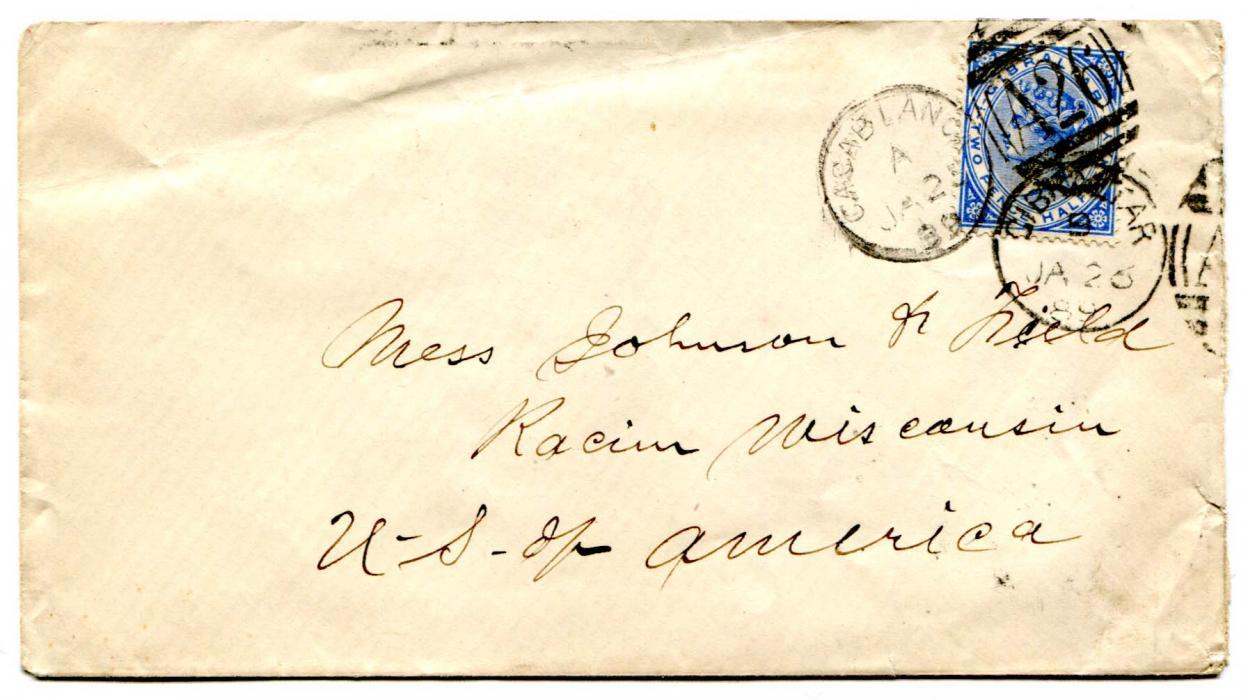 CASABLANCA
A
JA 2
89
GIBRALTAR
TWO PENCE HALF
A26
GIBRALTAR
JA 26
89
Mess Johnson & Field
Racine Wisconsin
U-S-of America